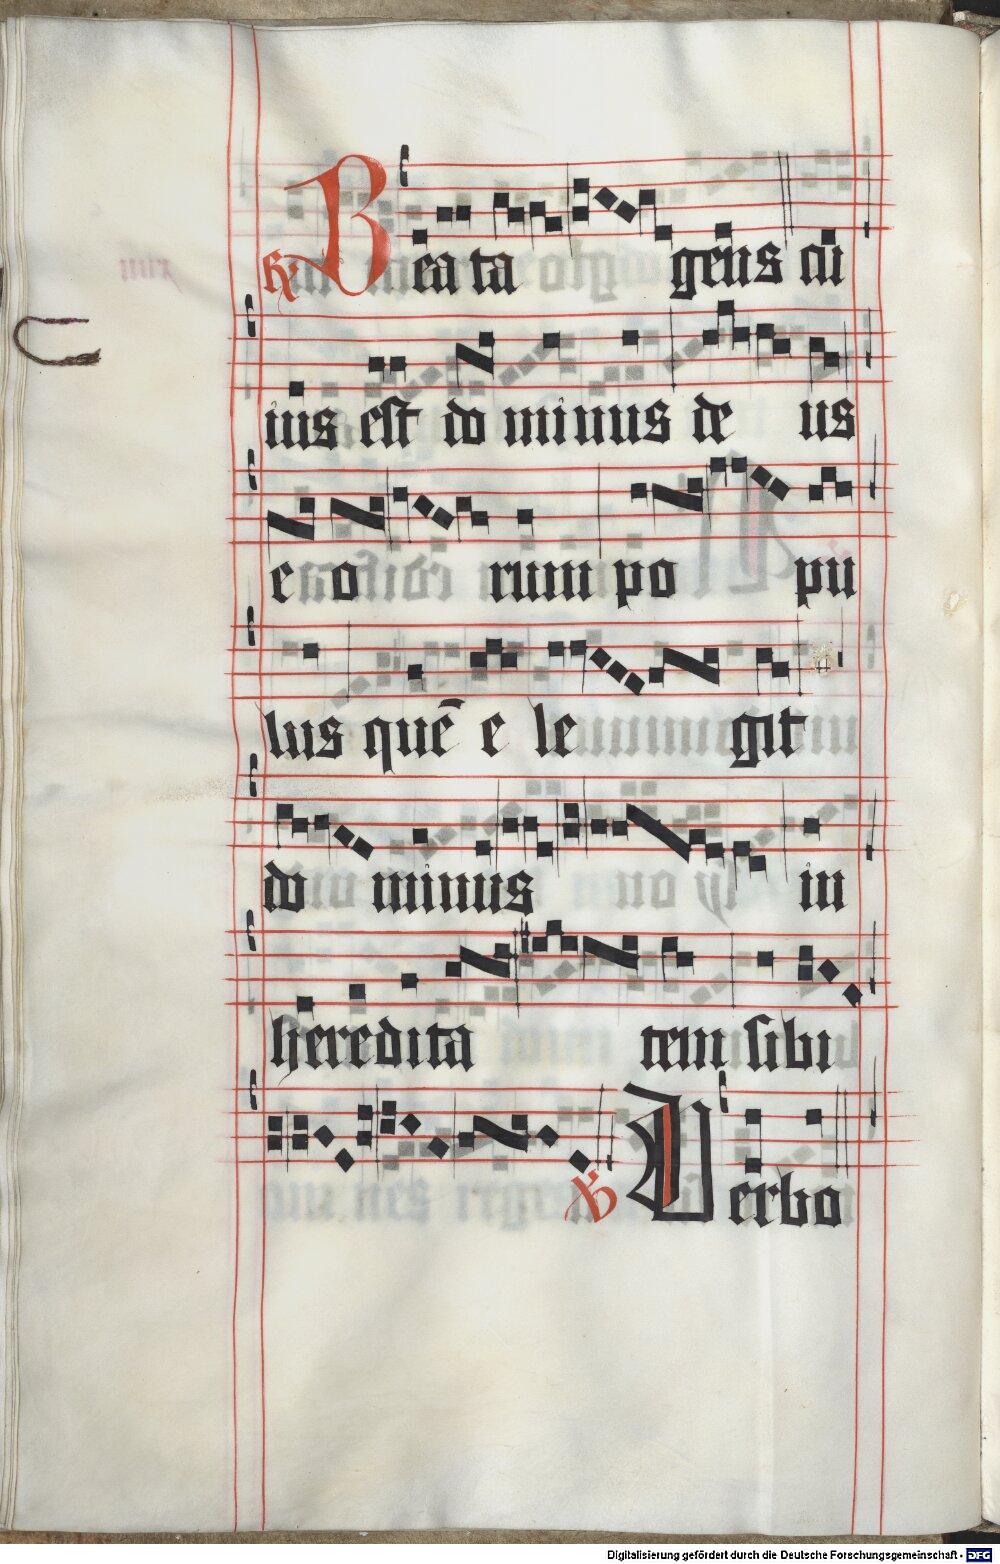 R Beata gens cu
ius est do minus de us
e o rum po pu
lus quē e le git
do minus in
heredita tem sibi
V Verbo
Digitalisierung gefördert durch die Deutsche Forschungsgemeinschaft - DFG